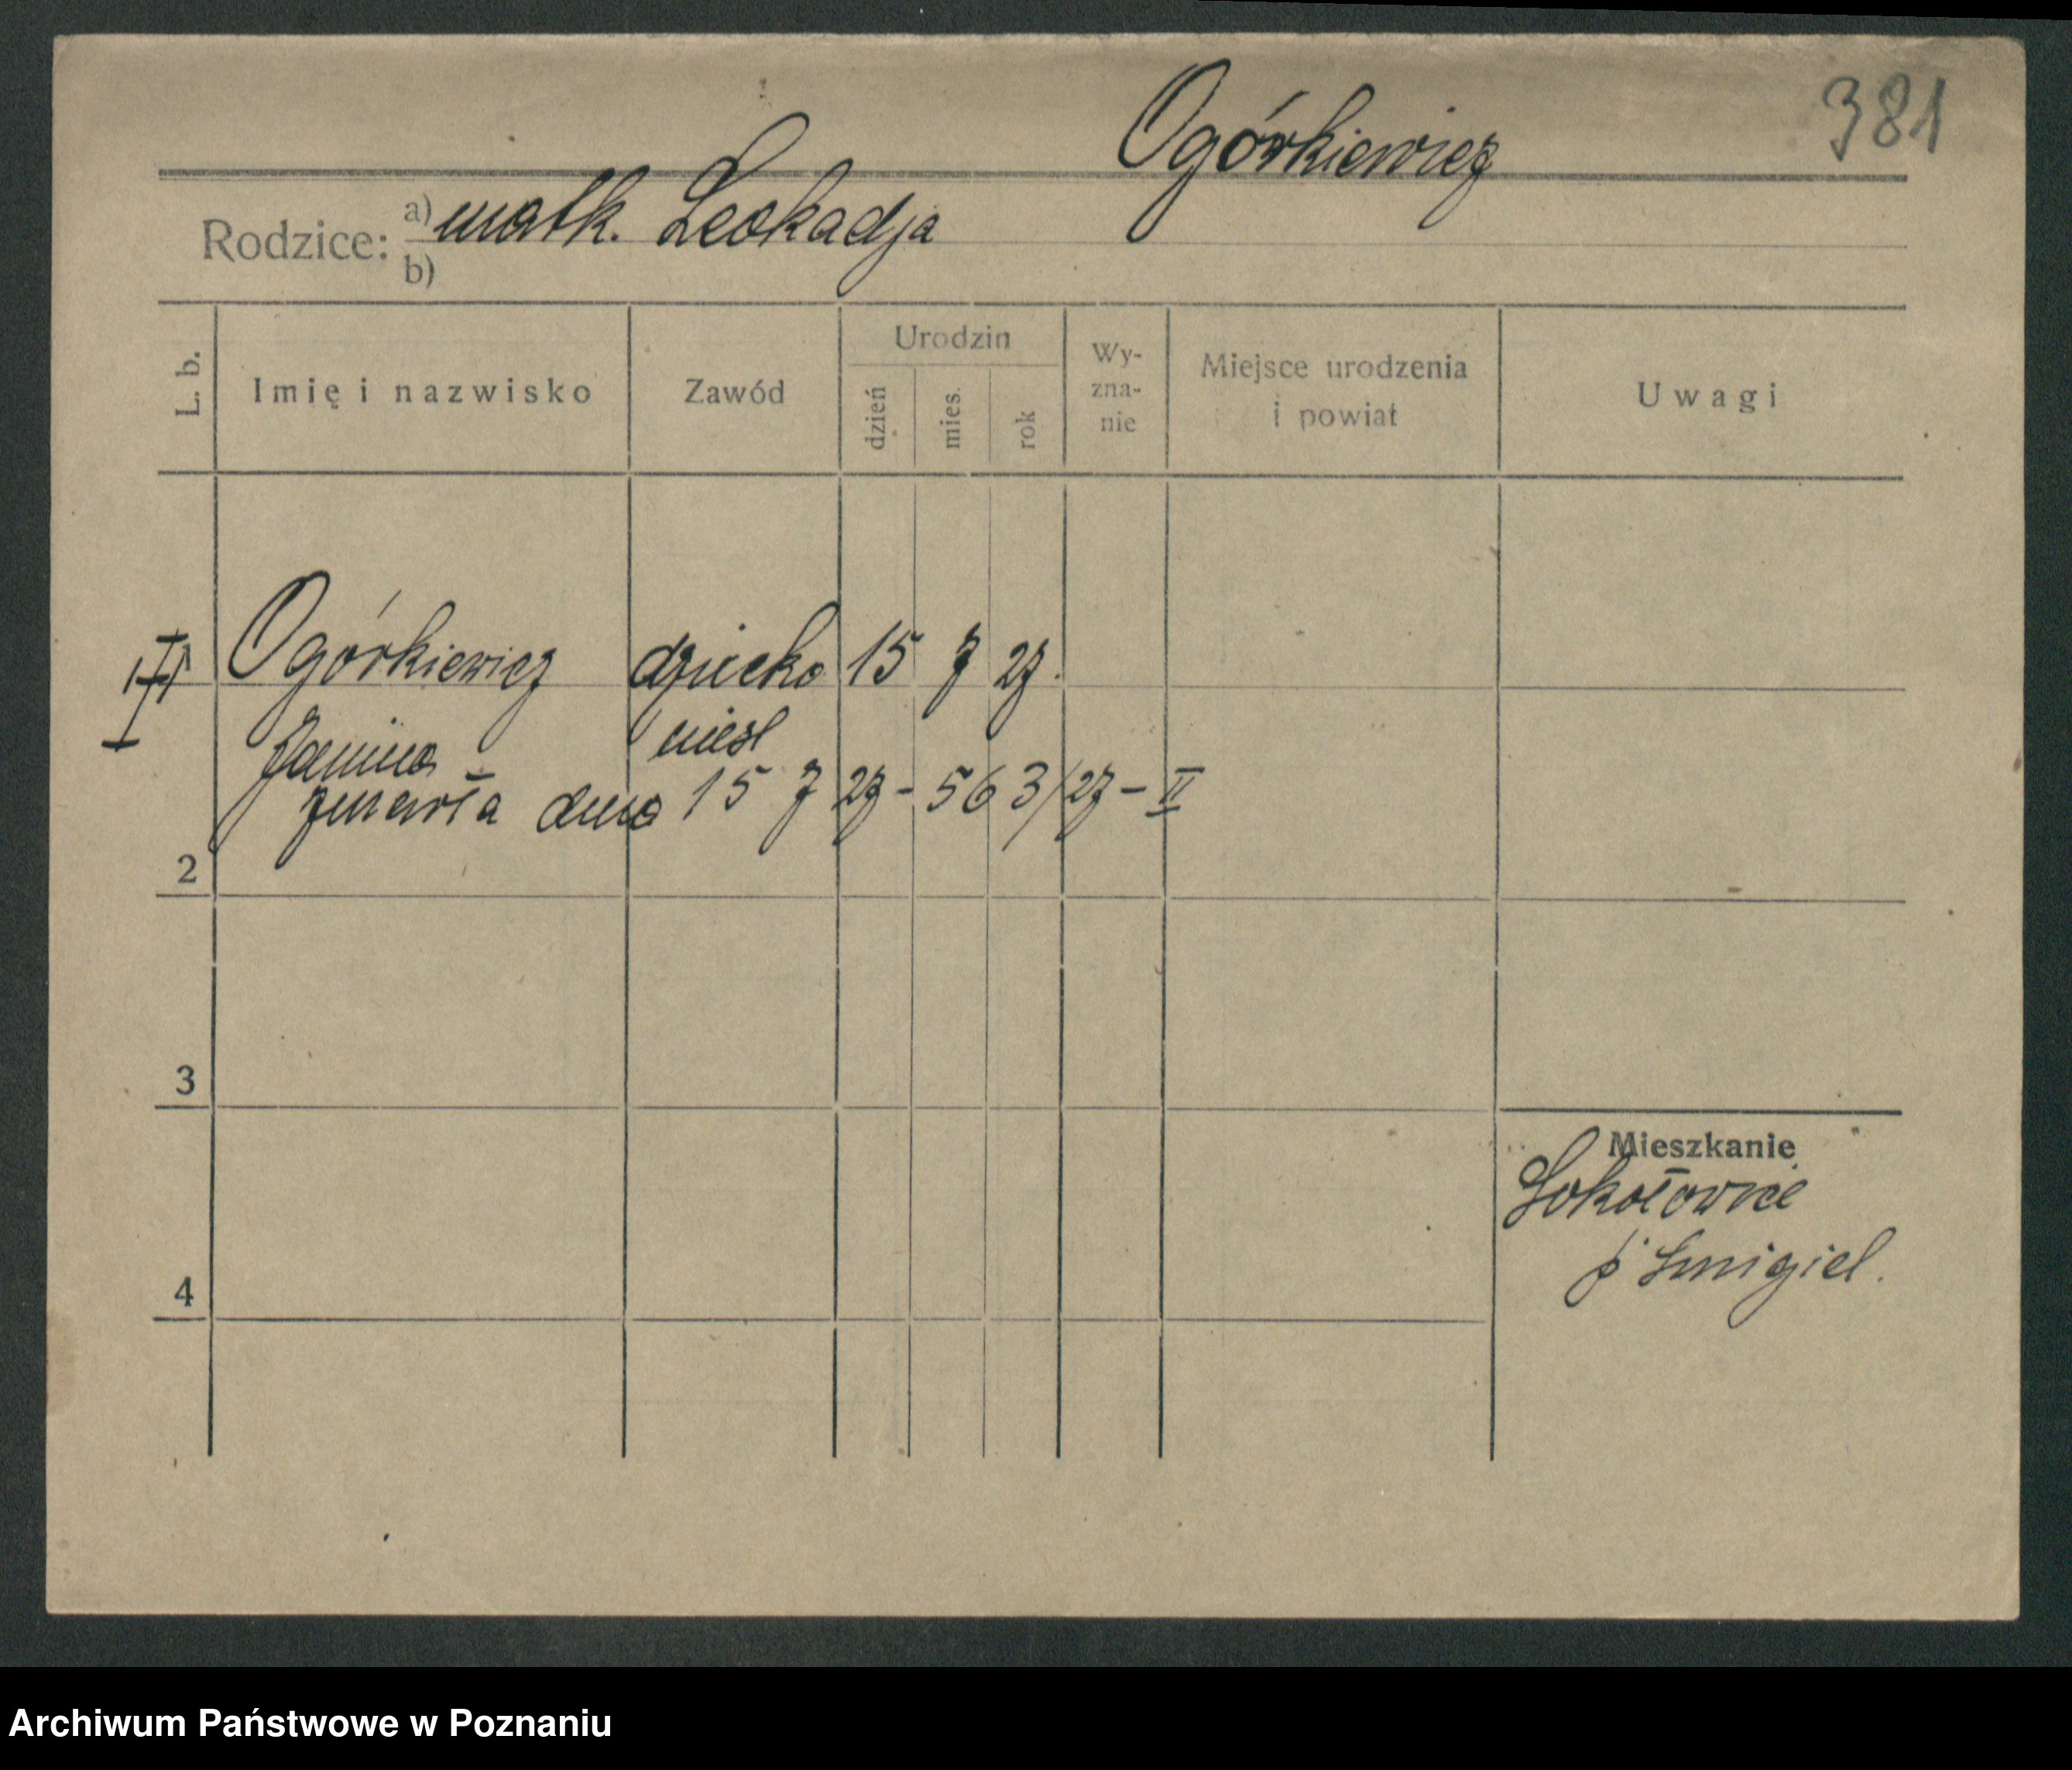 381
Ogórkiewicz
Rodzice: a) matk. Leokadja
b)
L. b.
Imię i nazwisko
Zawód
Urodzin
dzień
mies.
rok
Wy-
zna-
nie
Miejsce urodzenia
i powiat
Uwagi
Ogórkiewicz dziecko 15 7 27.
Janina nieśl
zmarła dnia 15 7 27 - 563/27 - II
2
3
4
Mieszkanie
Sokołowice
p Śmigiel.
Archiwum Państwowe w Poznaniu